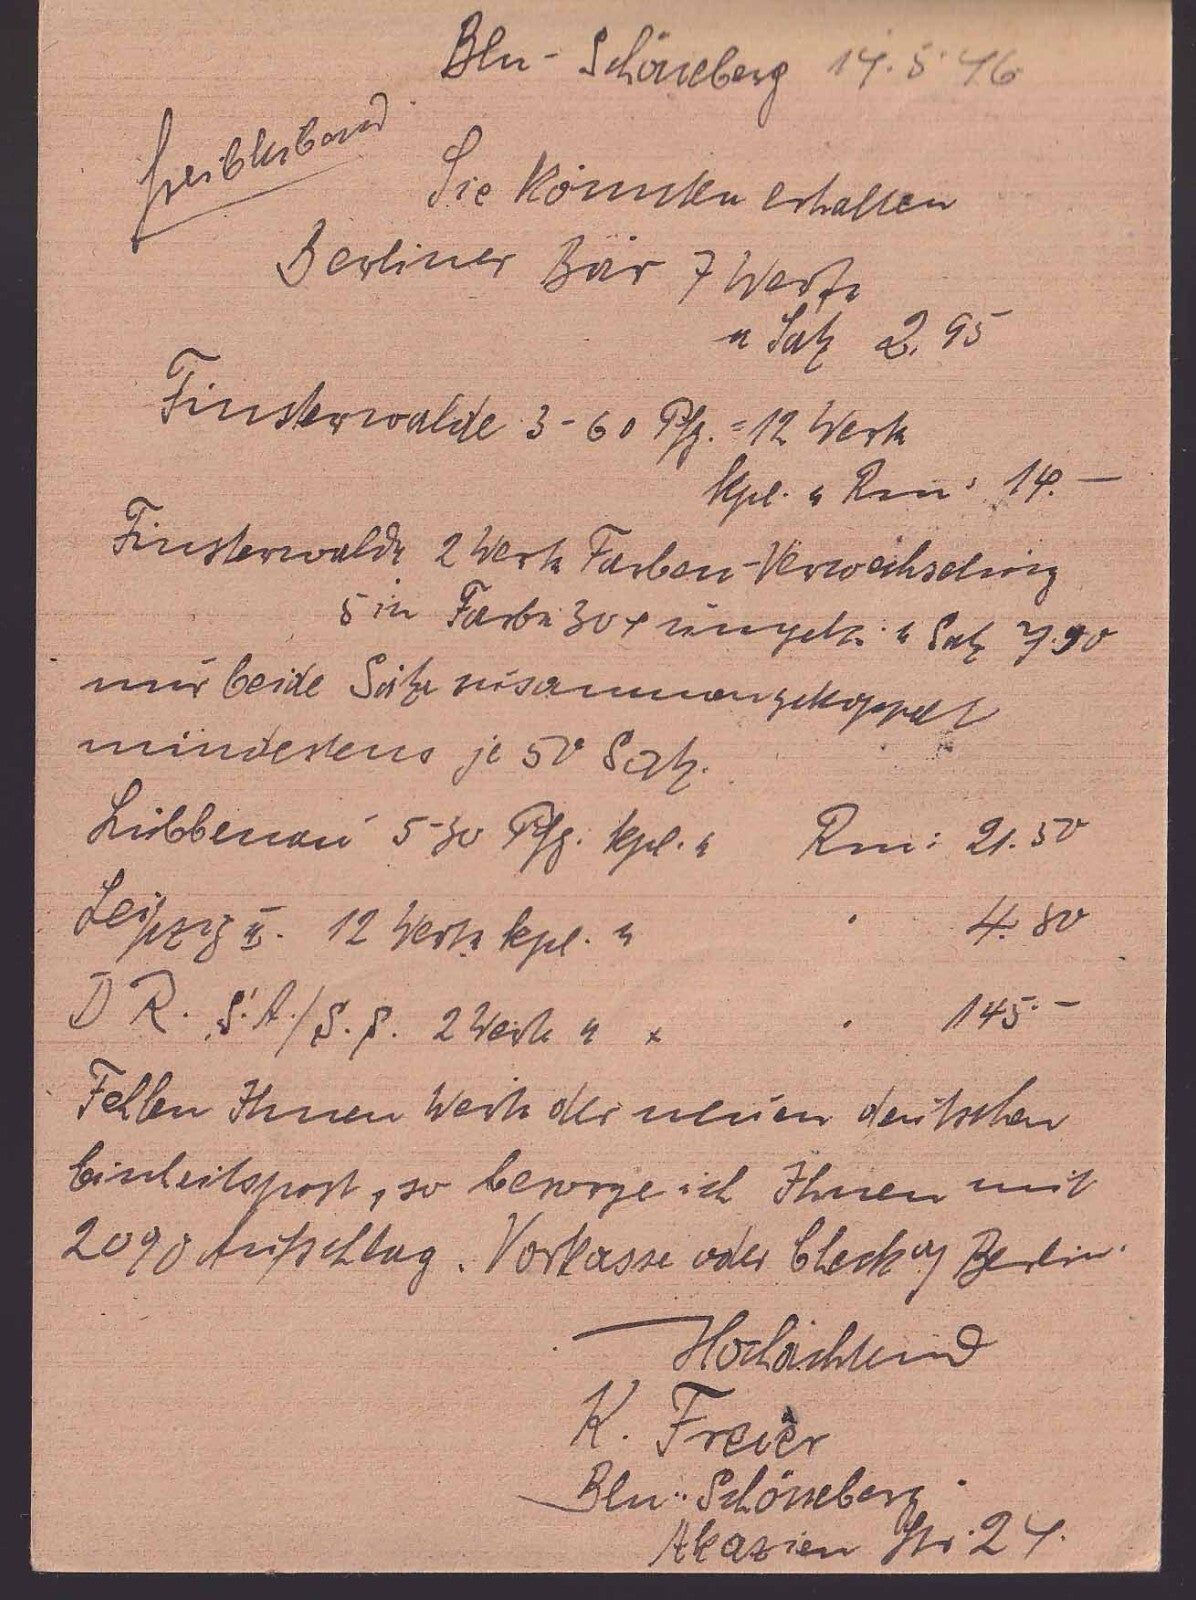 Bln - Schöneberg 14.5.46
freibleibend
Sie könnten erhalten
Berliner Bär 7 Werte
a Satz 2.95
Finsterwalde 3-60 Pfg. = 12 Werte
kpl. a Rm: 14.—
Finsterwalde 2 Werte Farben-Verwechslung
5 in Farbe 30 + umgek. a Satz 7.90
nur beide Sätze zusammengekoppelt
mindestens je 50 Satz.
Lübbenau 5-30 Pfg. kpl. a Rm: 21.50
Leipzig II. 12 Werte kpl. a " 4.80
D R. S.A./S.S. 2 Werte a x " 145.—
Fehlen Ihnen Werte der neuen deutschen
Einheitspost, so besorge ich Ihnen mit
20% Aufschlag. Vorkasse oder Check a/ Berlin.
Hochachtend
K. Freier
Bln.-Schöneberg.
Akazien Str. 24.